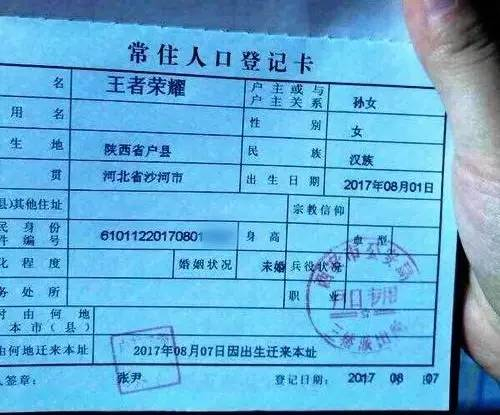 常住人口登记卡
名 王者荣耀 户主或与户主关系 孙女
用名 性别 女
生地 陕西省户县 民族 汉族
贯 河北省沙河市 出生日期 2017年08月01日
县)其他住址 宗教信仰
民身份件编号 61011220170801 身高 血型
化程度 婚姻状况 未婚 兵役状况
务处所 职业
由何地本市(县)
由何地迁来本址 2017年08月07日因出生迁来本址
人签章: 张尹 登记日期: 2017 08 07